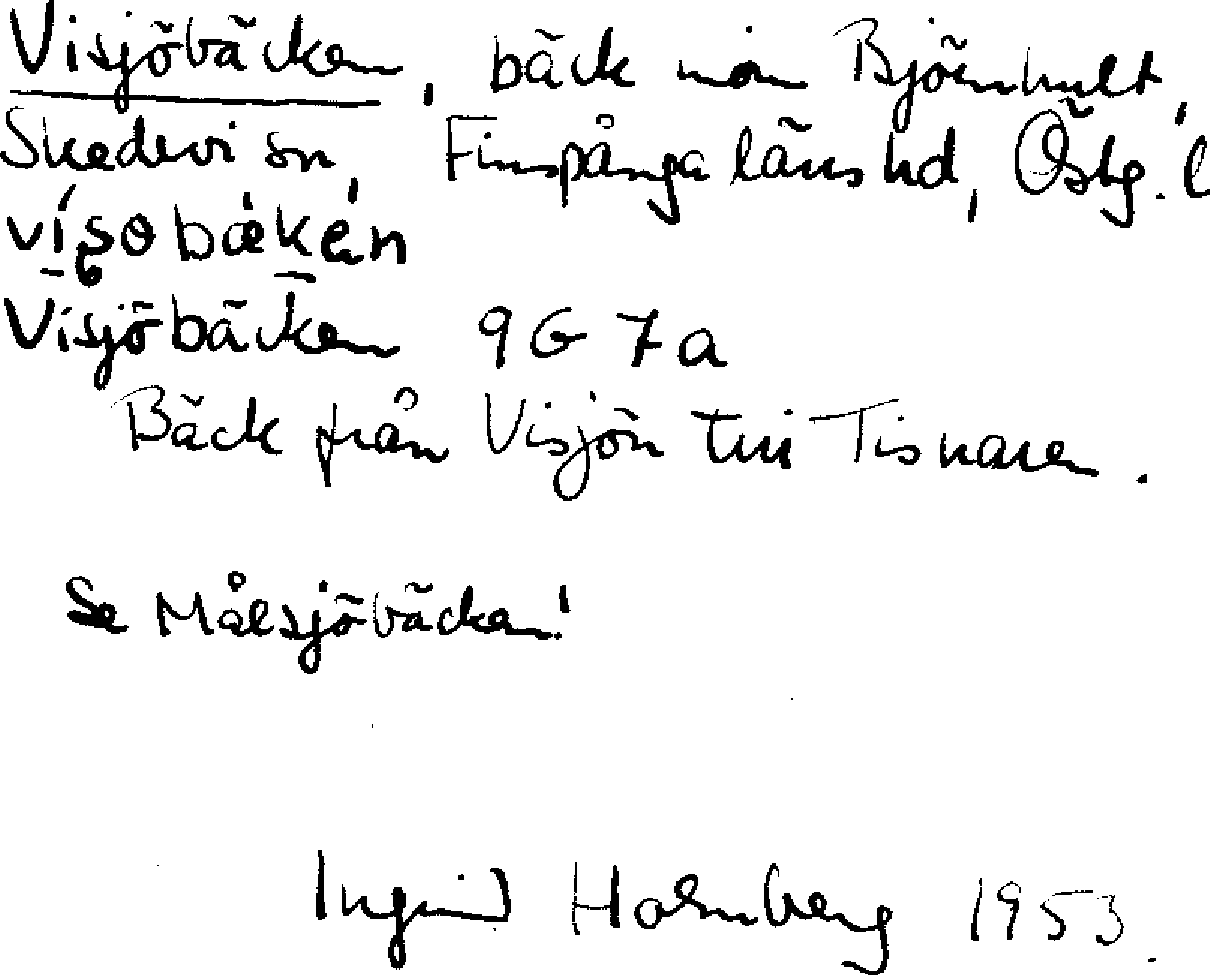 Visjöbäcken, bäck inom Björnhult,
Skedevi sn, Finspånga läns hd, Östg. l
Visjöbäcken 9G 7a
Bäck från Visjön till Tisnaren.
Se Målsjöbäcken!
Ingrid Holmberg 1953.